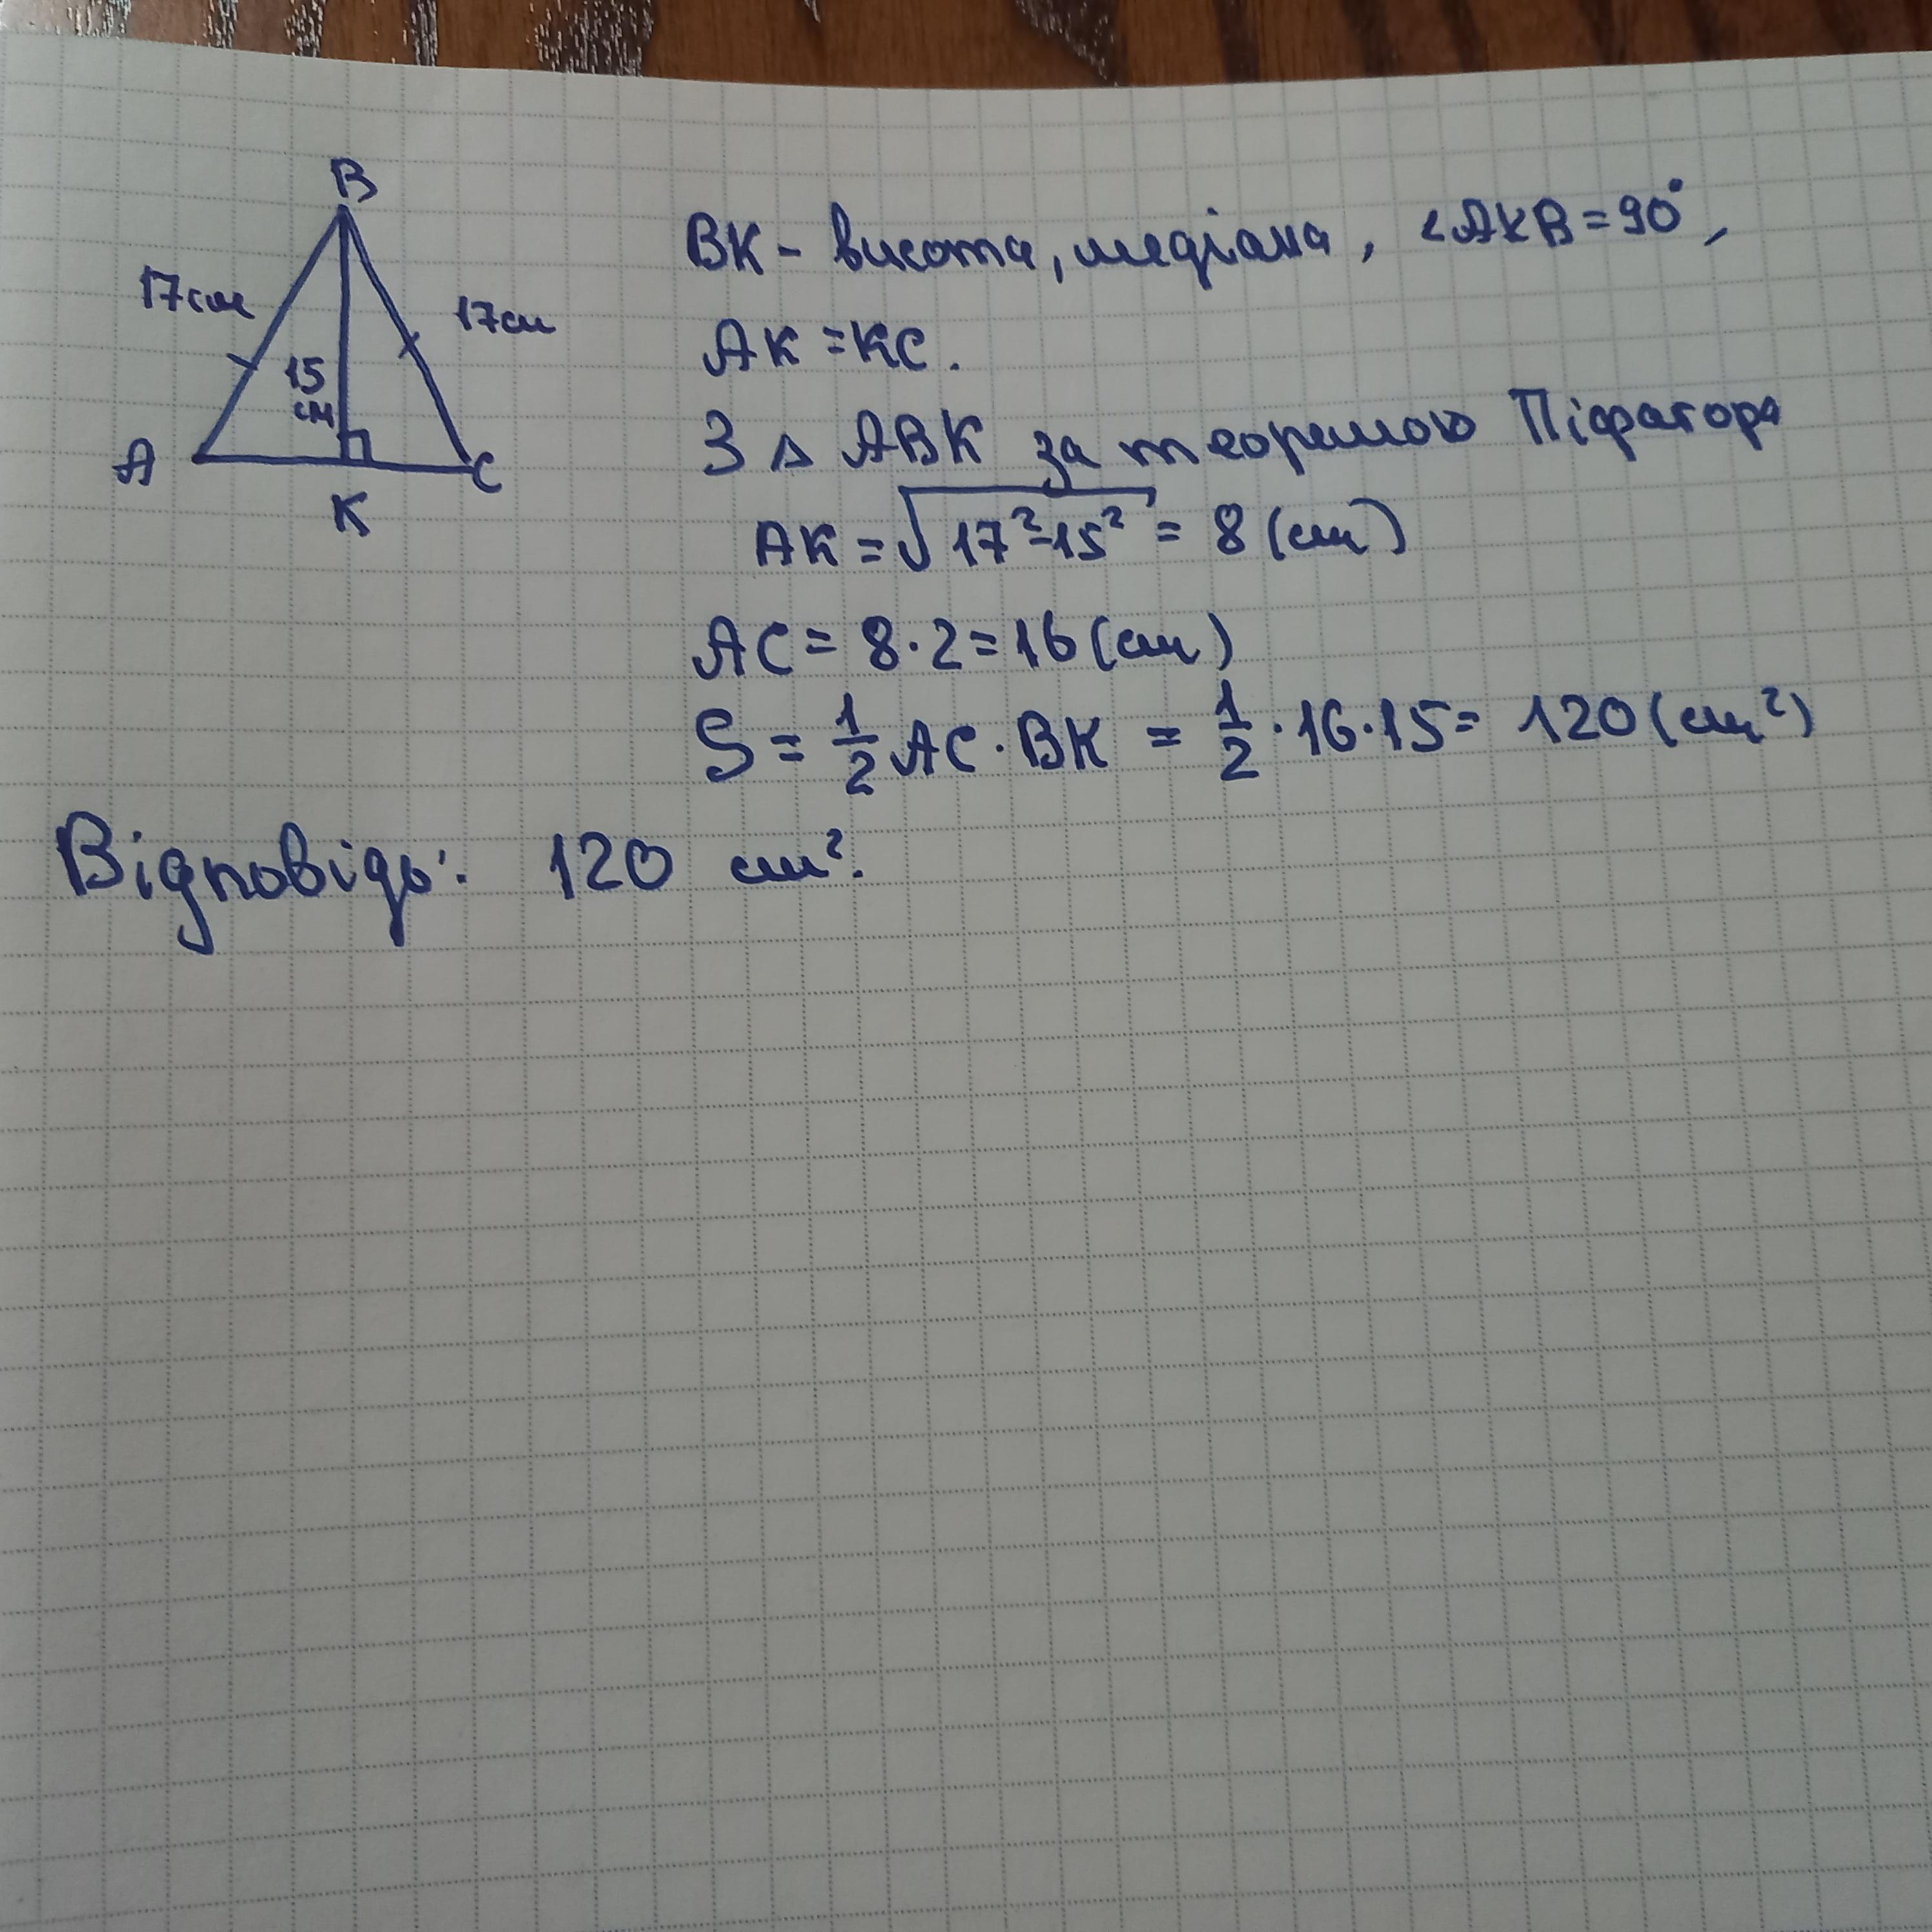 B
17см
17см
15
см
A
C
K
BK - висота, медіана, ∠AKB = 90°,
AK = KC.
З △ ABK за теоремою Піфагора
AK = √17²-15² = 8 (см)
AC = 8·2 = 16 (см)
S = 1/2 AC · BK = 1/2 · 16 · 15 = 120 (см²)
Відповідь: 120 см².